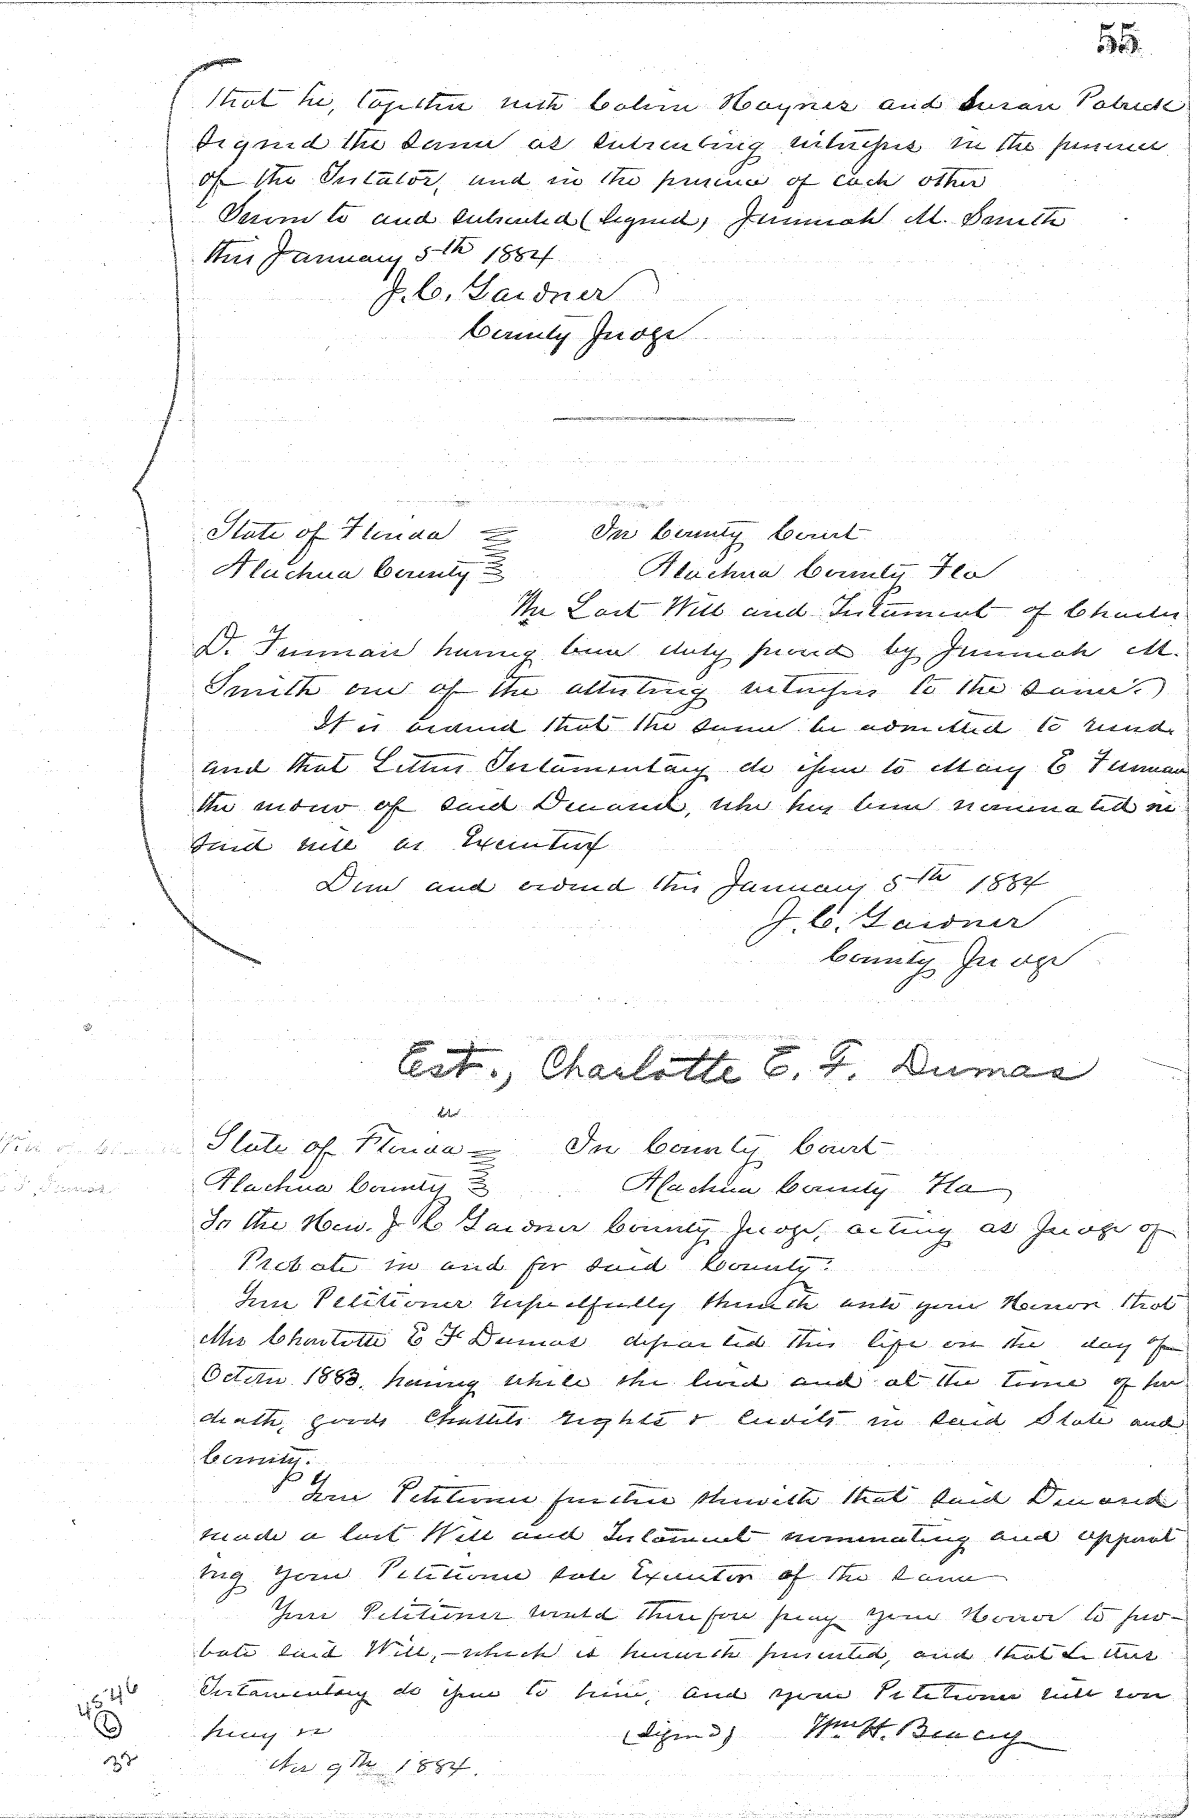 55
that he, together with Calvin Haynes and Susan Patrick
signed the same as subscribing witnesses in the presence
of the Testator, and in the presence of each other
Sworn to and subscribed (signed) Jeremiah M. Smith
this January 5th 1884
J. C. Gardner
County Judge
State of Florida In County Court
Alachua County Alachua County Fla
The Last Will and Testament of Charles
D. Furman having been duly proved by Jeremiah M.
Smith one of the attesting witnesses to the same.
It is ordered that the same be admitted to record
and that Letters Testamentary do issue to Mary E Furman
the widow of said Deceased, who has been nominated in
said will as Executrix
Done and ordered this January 5th 1884
J. C. Gardner
County Judge
Est., Charlotte E. F. Dumas
State of Florida In County Court
Alachua County Alachua County Fla
To the Hon. J C Gardner County Judge, acting as Judge of
Probate in and for said County:
Your Petitioner respectfully sheweth unto your Honor that
Mrs Charlotte E F Dumas departed this life on the day of
October 1883, having while she lived and at the time of her
death, goods Chattels rights & Credits in said State and
County.
Your Petitioner further sheweth that said Deceased
made a last Will and Testament nominating and appoint
ing your Petitioner sole Executor of the same
Your Petitioner would therefore pray your Honor to pro-
bate said Will, which is herewith presented, and that Letters
Testamentary do issue to him, and your Petitioner will ever
pray &c (signed) Wm H. Beacey
9th 1884.
4546
6
32